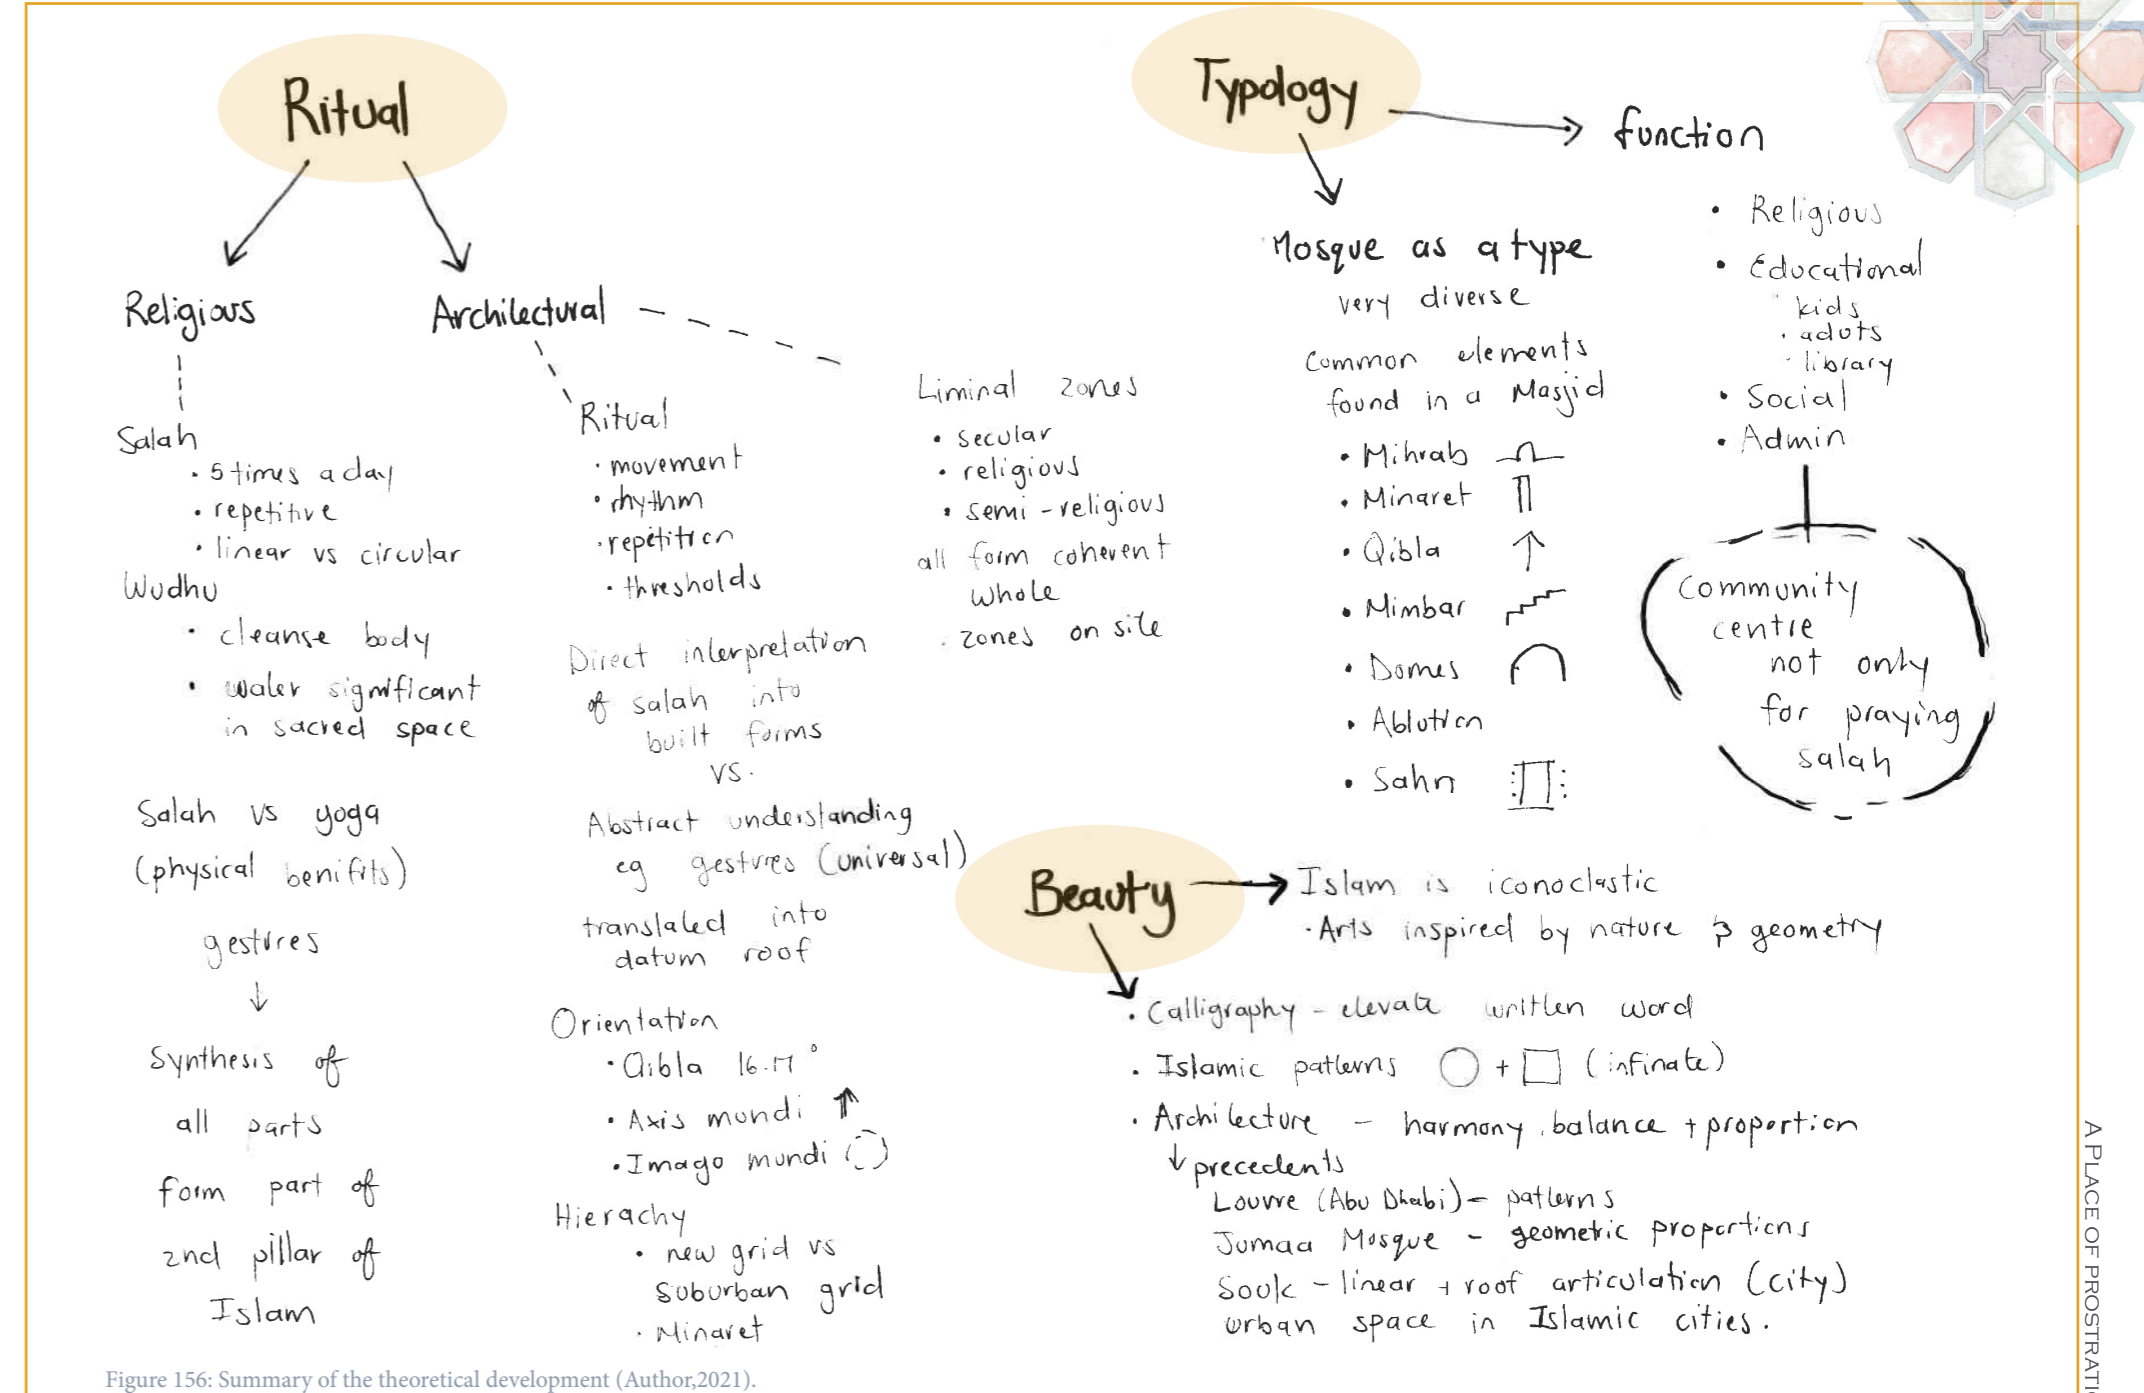 Ritual
Religious
Salah
• 5 times a day
• repetitive
• linear vs circular
Wudhu
• cleanse body
• water significant
in sacred space
Salah vs yoga
(physical benifits)
gestures
↓
Synthesis of
all parts
form part of
2nd pillar of
Islam
Architectural
Ritual
• movement
• rhythm
• repetition
• thresholds
Direct interpretation
of salah into
built forms
vs.
Abstract understanding
eg gestures (universal)
translated into
datum roof
Orientation
• Qibla 16.17°
• Axis mundi ↑
• Imago mundi
Hierachy
• new grid vs
suburban grid
• Minaret
Liminal zones
• secular
• religious
• semi-religious
all form coherent
whole
• zones on site
Typology
Mosque as a type
very diverse
Common elements
found in a Masjid
• Mihrab
• Minaret
• Qibla ↑
• Mimbar
• Domes
• Ablution
• Sahn
function
• Religious
• Educational
• kids
• adults
• library
• Social
• Admin
Community
centre
not only
for praying
salah
Beauty
Islam is iconoclastic
• Arts inspired by nature & geometry
• Calligraphy - elevate written word
• Islamic patterns ○ + □ (infinate)
• Architecture - harmony, balance + proportion
↓ precedents
Louvre (Abu Dhabi) - patterns
Jumaa Mosque - geometric proportions
Souk - linear + roof articulation (city)
urban space in Islamic cities.
Figure 156: Summary of the theoretical development (Author,2021).
A PLACE OF PROSTRATI